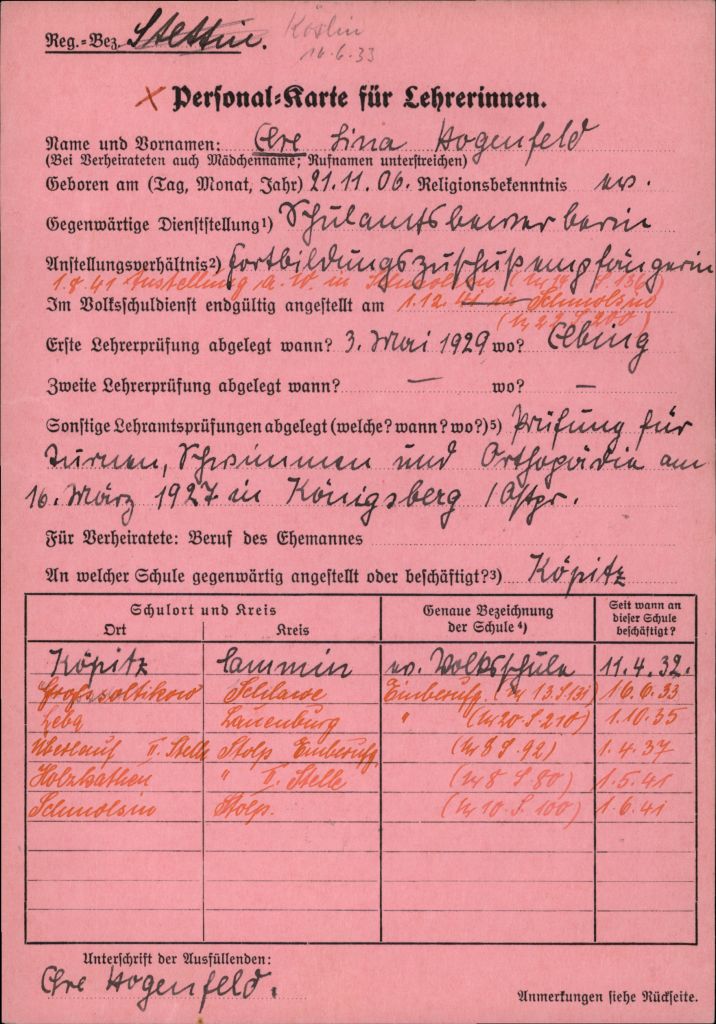 Reg.=Bez. Stettin. Köslin
16.6.33
Personal=Karte für Lehrerinnen.
Name und Vornamen: Eve Lina Hogenfeld
(Bei Verheirateten auch Mädchenname; Rufnamen unterstreichen)
Geboren am (Tag, Monat, Jahr) 21.11.06. Religionsbekenntnis ev.
Gegenwärtige Dienststellung¹) Schulamtsbewerberin
Anstellungsverhältnis²) Fortbildungszuschußempfängerin
Anstellung a. W. in Schmolsin
Im Volksschuldienst endgültig angestellt am 1.12.41 in Schmolsin
Erste Lehrerprüfung abgelegt wann? 3. Mai 1929 wo? Elbing
Zweite Lehrerprüfung abgelegt wann? — wo? —
Sonstige Lehramtsprüfungen abgelegt (welche? wann? wo?)⁵) Prüfung für
Turnen, Schwimmen und Orthopädie am
16. März 1927 in Königsberg /Ostpr.
Für Verheiratete: Beruf des Ehemannes
An welcher Schule gegenwärtig angestellt oder beschäftigt?³) Köpitz
Schulort und Kreis Genaue Bezeichnung der Schule⁴) Seit wann an dieser Schule beschäftigt?
Ort Kreis
Köpitz Cammin ev. Volksschule 11.4.32.
Grosssoltikow Schlawe Einberufg. (Ly 13 S 131) 16.6.33
Leba Lauenburg " (Ly 20 S. 210) 1.10.35
Überlauf II. Stelle Stolp Einberufg. (Ly 8 S. 92) 1.4.37
Holzkathen " II. Stelle (Ly 8 S 80) 1.5.41
Schmolsin Stolp. (Ly 10. S. 100) 1.6.41
Unterschrift der Ausfüllenden:
Eve Hogenfeld.
Anmerkungen siehe Rückseite.